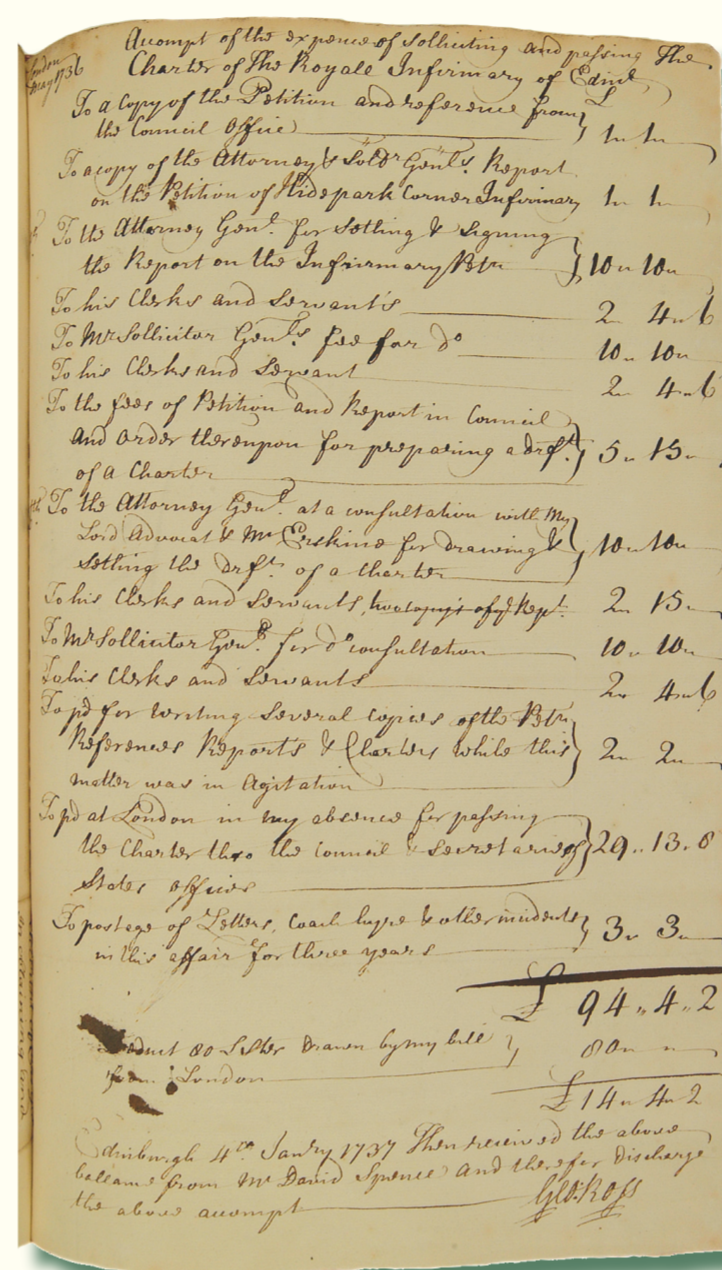 London
May 1736
Accompt of the expence of solliciting and passing The
Charter of The Royale Infirmary of Edinr
£
To a Copy of the Petition and reference from
the Council Office 1 " 1 "
To a copy of the Attorney & Sollr Genls. Report
on the Petition of Hidepark Corner Infirmary 1 " 1 "
To the Attorney Genl. for Setling & Signing
the Report on the Infirmary Petn 10 " 10 "
To his Clerks and Servants 2 " 4 " 6
To Mr Sollicitor Genls fee for do 10 " 10 "
To his Clerks and Servant 2 " 4 " 6
To the fees of Petition and Report in Council
and order thereupon for prepairing a drft. 5 " 15 "
of a Charter
To the Attorney Genl. at a consultation with My
Lord Advocat & Mr Erskine for drawing & 10 " 10 "
Setling the drft. of a Charter
To his Clerks and Servants, two copys of ye Rept. 2 " 15 "
To Mr Sollicitor Genl. for do consultation 10 " 10 "
To his Clerks and Servants 2 " 4 " 6
To pd for writing Several copies of the Petn
References Reports & Charters while this 2 " 2 "
matter was in Agitation
To pd at London in my absence for passing
the Charter thro the Council & Secretaries of 29 " 13 " 8
State's offices
To postage of Letters, Coach hyre & other incidents 3 " 3 "
in this affair for three years
£ 94 " 4 " 2
Deduct 80 £ Ster drawn by my bill 80 " "
from London
£ 14 " 4 " 2
Edinburgh 4th Janry 1737 Then received the above
ballame from Mr David Spence and therefor discharge
the above accompt
Geo: Ross